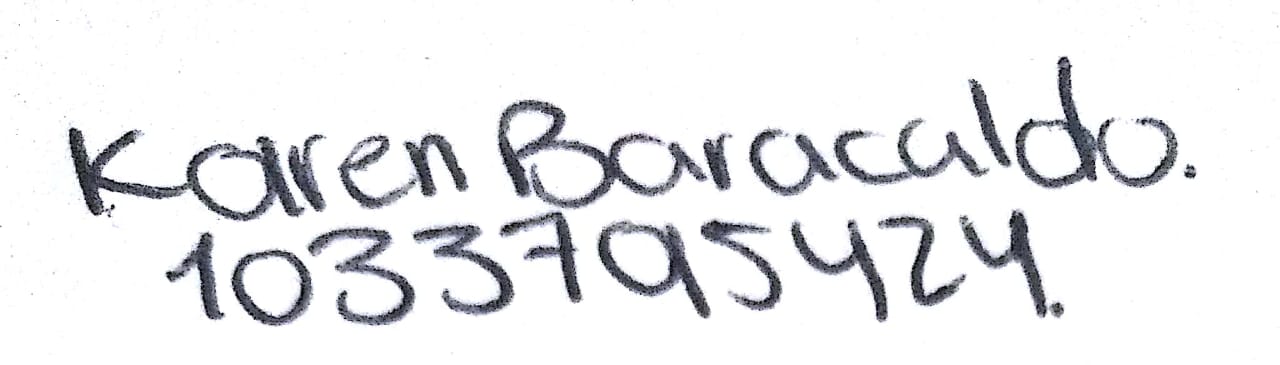 Karen Baracaldo.
1033795424.